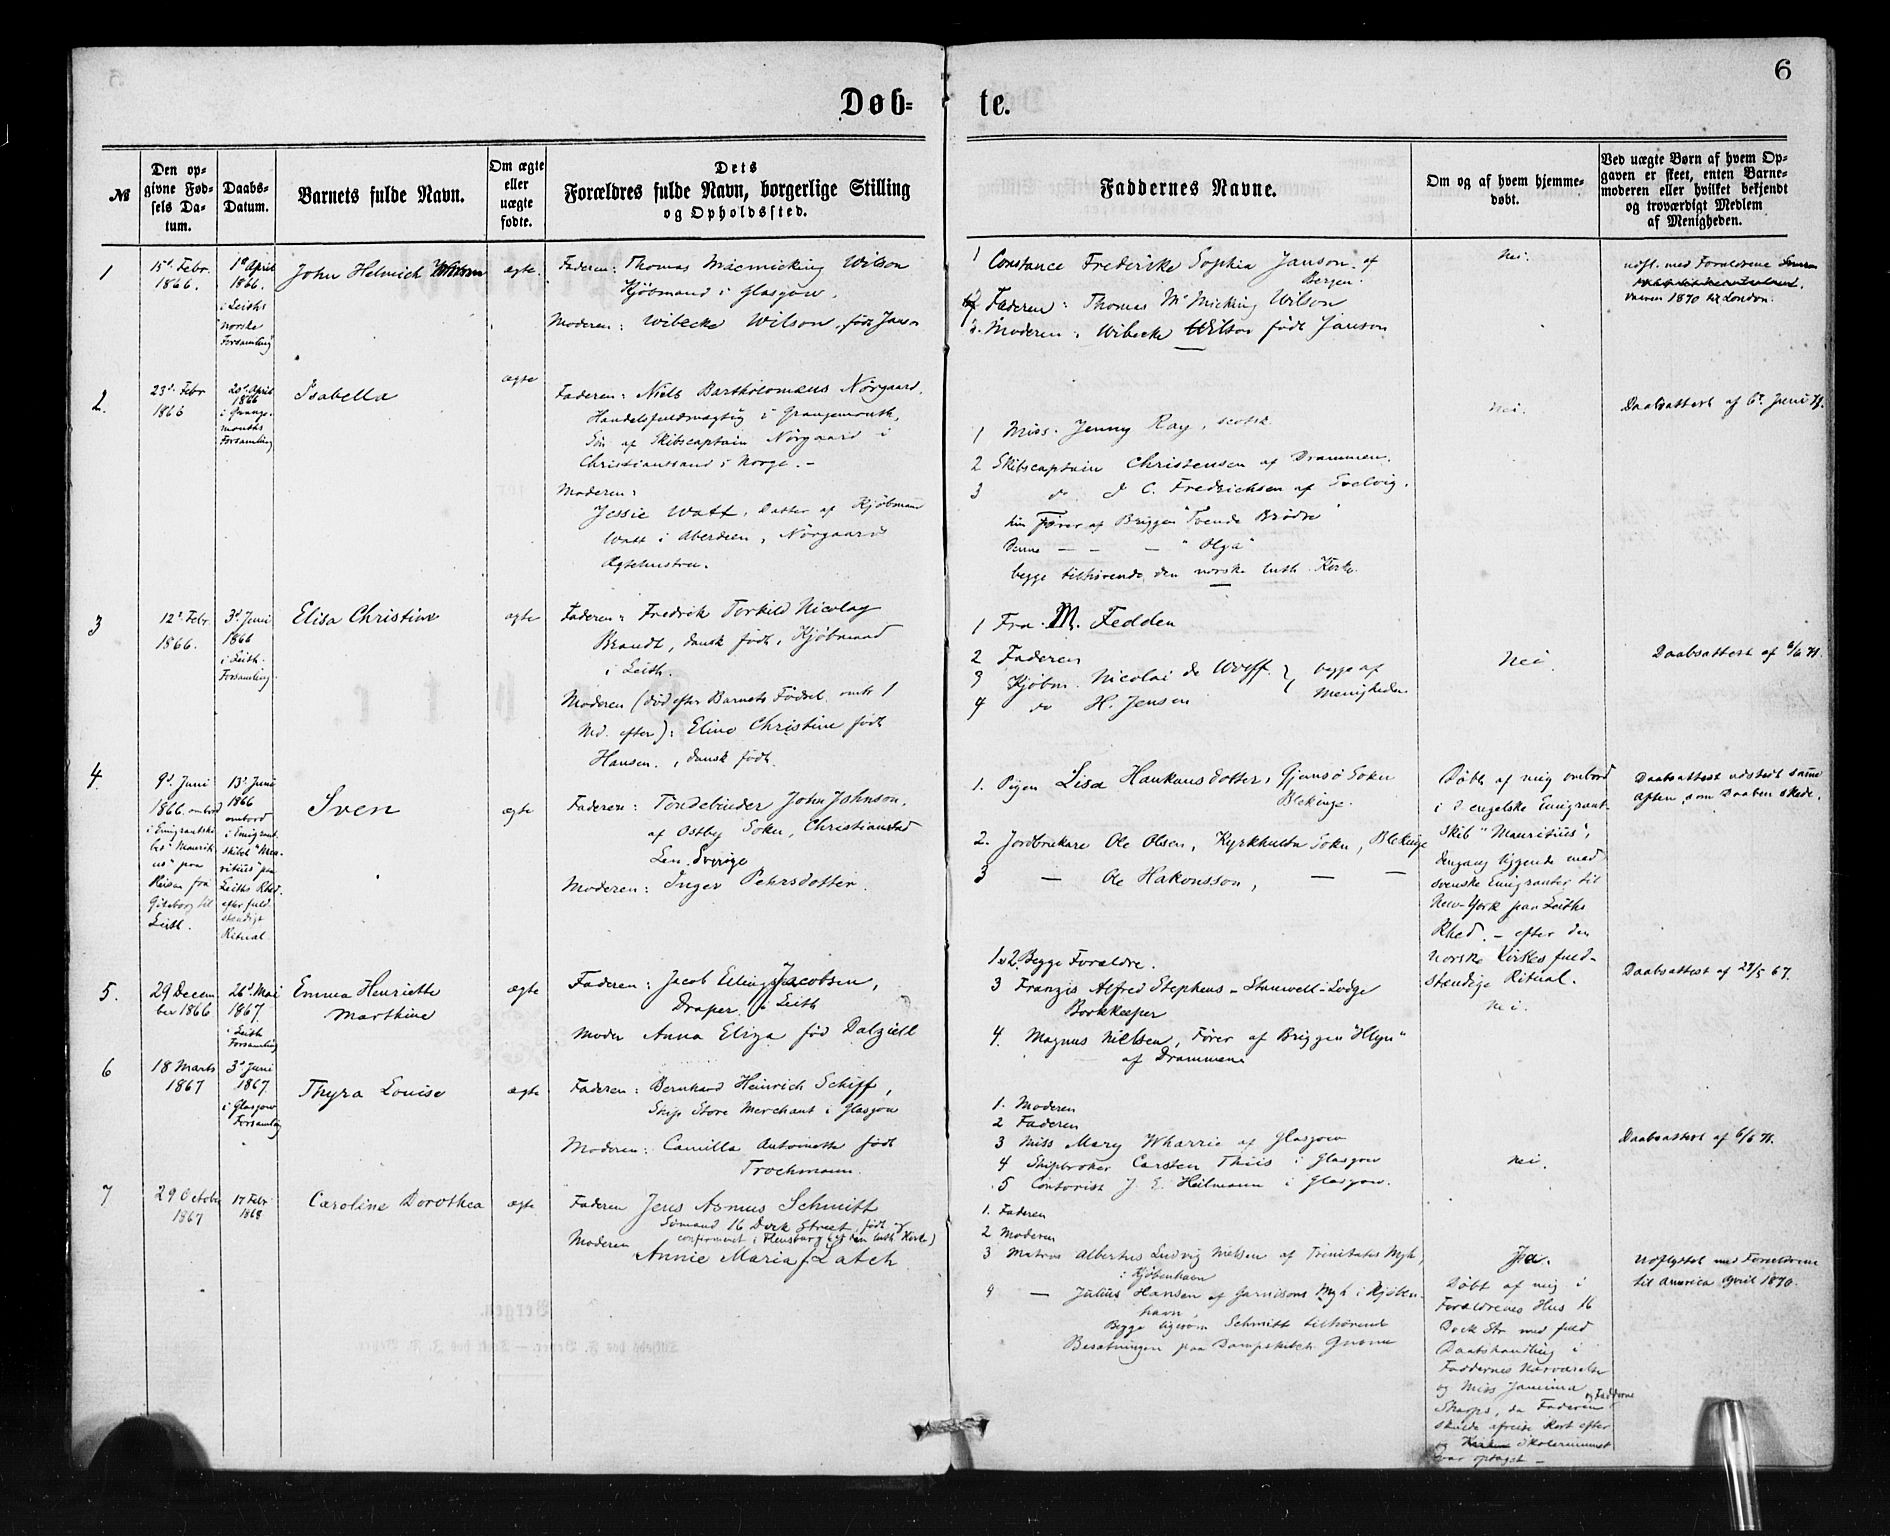 6
Døb= te.
№
Den op-
givne Fød-
sels Da-
tum.
Daabs-
Datum.
Barnets fulde Navn.
Om ægte
eller
uægte
fødte.
Dets
Forældres fulde Navn, borgerlige Stilling
og Opholdssted.
Faddernes Navne.
Om og af hvem hjemme-
døbt.
Ved uægte Børn af hvem Op-
gaven er skeet, enten Barne-
moderen eller hvilket bekjendt
og troværdigt Medlem
af Menigheden.
1
15d. Febr.
1866.
1ste April
1866.
i Leiths
norske
Forsamling
John Helmich
ægte.
Faderen: Thomas Macmicking Wilson
Kjøbmand i Glasgow.
Moderen: Wibecke Wilson, født Janson
1 Constance Frederike Sophia Janson. af
Bergen.
Faderen: Thomas McMicking Wilson
Moderen: Wibecke Wilson født Janson
Nei.
udfl. med Forældrene
1870 til London.
2.
23d. Febr
1866
20d. April
1866
i Grange-
mouths
Forsamling
Isabella
ægte
Faderen: Niels Bartholomæus Nørgaard,
Handelsfuldmægtig i Grangemouth,
Søn af Skibscaptain Nørgaard i
Christianssand i Norge. –
Moderen:
Jessie Watt, Datter af Kjøbmand
Watt i Aberdeen, Nørgaards
Ægtehustru.
1 Miss. Jenny Ray, scotsk
2 Skibscaptain Christensen af Drammen.
3 do. C. Fredrichsen af Svelvig.
hin Fører af Briggen "Tvende Brødre"
Denne — — — "Olga"
begge tilhørende den norske luth. Kirke.
Nei.
Daabsattest af 6te Juni 71.
3
12t. Febr.
1866.
3d. Juni
1866
i Leith.
Forsamling.
Elisa Christine
ægte
Faderen: Fredrik Torkild Nicolay
Brandt, dansk født, Kjøbmand
i Leith.
Moderen (død efter Barnets Fødsel omtr 1
Md. efter): Eline Christine født
Hansen., dansk født.
1 Fru. M. Fedden
2 Faderen
3 Kjøbm. Nicolai de Wolff } begge af
4 do H. Jensen menigheden
Nei.
Daabsattest af 6/6 71.
4.
9d. Juni
1866. ombord
i Emigrantski-
bet "Maurit-
ius" paa
Reisen fra
Göteborg til
Leith.
13d. Juni
1866
ombord
i Emigrant-
skibet "Mau-
ritius" paa
Leiths Rhed.
efter fuld-
stændigt
Ritual
Sven
ægte
Faderen: Tøndebinder John Johnson,
af Ostby Sokn, Christianstad
Len. Sverige
Moderen: Inger Pehrsdotter.
1. Pigen Lisa Haukansdotter, Gjemsö Sokn
Blekinge.
2. Jordbrukare Ole Olsen, Kyrkhulta Sokn, Blekinge
3 — Ole Hakonsson, — —
Døbt af mig ombord
i d engelske Emigrant-
skib "Mauritius",
dengang liggende med
svenske Emigranter til
New-York paa Leiths
Rhed. – efter den
norske Kirkes fuld-
stændige Ritual.
Daabsattest udstedt samme
Aften, som Daaben skede.
5.
29 Decem
ber 1866
26d. Mai
1867.
i Leith
Forsamling
Emma Henriette
Marthine
ægte
Faderen: Jacob Ellingsen Jacobsen,
Draper. i Leith
Moder Anna Eliza fød Dalziell
1 & 2. Begge Forældre.
3 Franzis Alfred Stephens – Stanwell-Lodge
Bookkeeper
4. Magnus Nielsen, Fører af Briggen "Hlyn"
af Drammen
Nei.
Daabsattest af 27/5 67.
6
18 Marts
1867
3d Juni
1867
i Glasgow
Forsamling
Thyra Louise
ægte
Faderen: Bernhard Heinrich Schiff,
Ship Store Merchant i Glasgow
Moderen: Camilla Antoinette født
Trochmann.
1. Moderen
2 Faderen
3 Miss Mary Wharrie af Glasgow
4 Skipbroker Carsten Thiis i Glasgow
5 Contorist J. E. Heilmann i Glasgow.
Nei.
Daabsattest af 6/6 71.
7
29 October
1867
17 Febr
1868
Caroline Dorothea
ægte
Faderen Jens Asmus Schmitt
Sømand 16 Dock Street, født og
confirmeret i Flensburg (i den luth Kirke)
Moderen Annie Maria f. Latch
1. Faderen
2 Moderen
3 Matros Albertus Ludvig Nielsen af Trinitatis Mgh,
i Kjøbenhavn
4 — Julius Hansen af Garnisons Mgh i Kjøben-
havn,
Begge ligesom Schmitt tilhørende
Besætningen paa Dampskibet Gnome
Ja.
Døbt af mig i
Forældrenes Hus 16
Dock Str med fuld
Daabshandling i
Faddernes Nærværelse
og Miss Jamima
Sharps, da Faderen og Fadderne
skulde afreise kort efter
og Skolerummet
var optaget –
Udflyttet med Forældrene
til America April 1870.